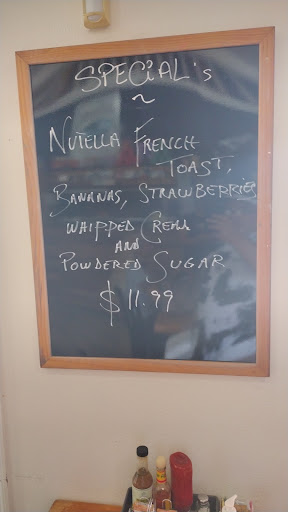 SPECiAL's
~
NUTELLA FRENCH
TOAST,
BANANAS, STRAWBERRIES
WHIPPED CREAM
AND
POWDERED SUGAR
$11.99